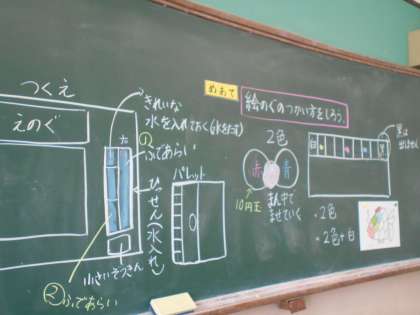 めあて
絵のぐのつかい方をしろう。
つくえ
えのぐ
きれいな
水を入れておく(水をたす)
①
ふであらい
ひっせん(水入れ)
小さいぞうきん
②ふであらい
パレット
2色
赤
青
10円玉
まん中で
まぜていく
白
黒
黒は
出しません
・2色
・2色+白